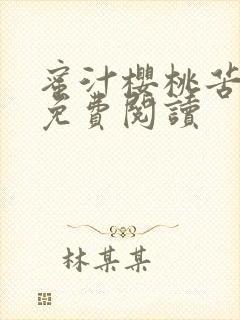 蜜汁櫻桃苦
免費閱讀
林某某